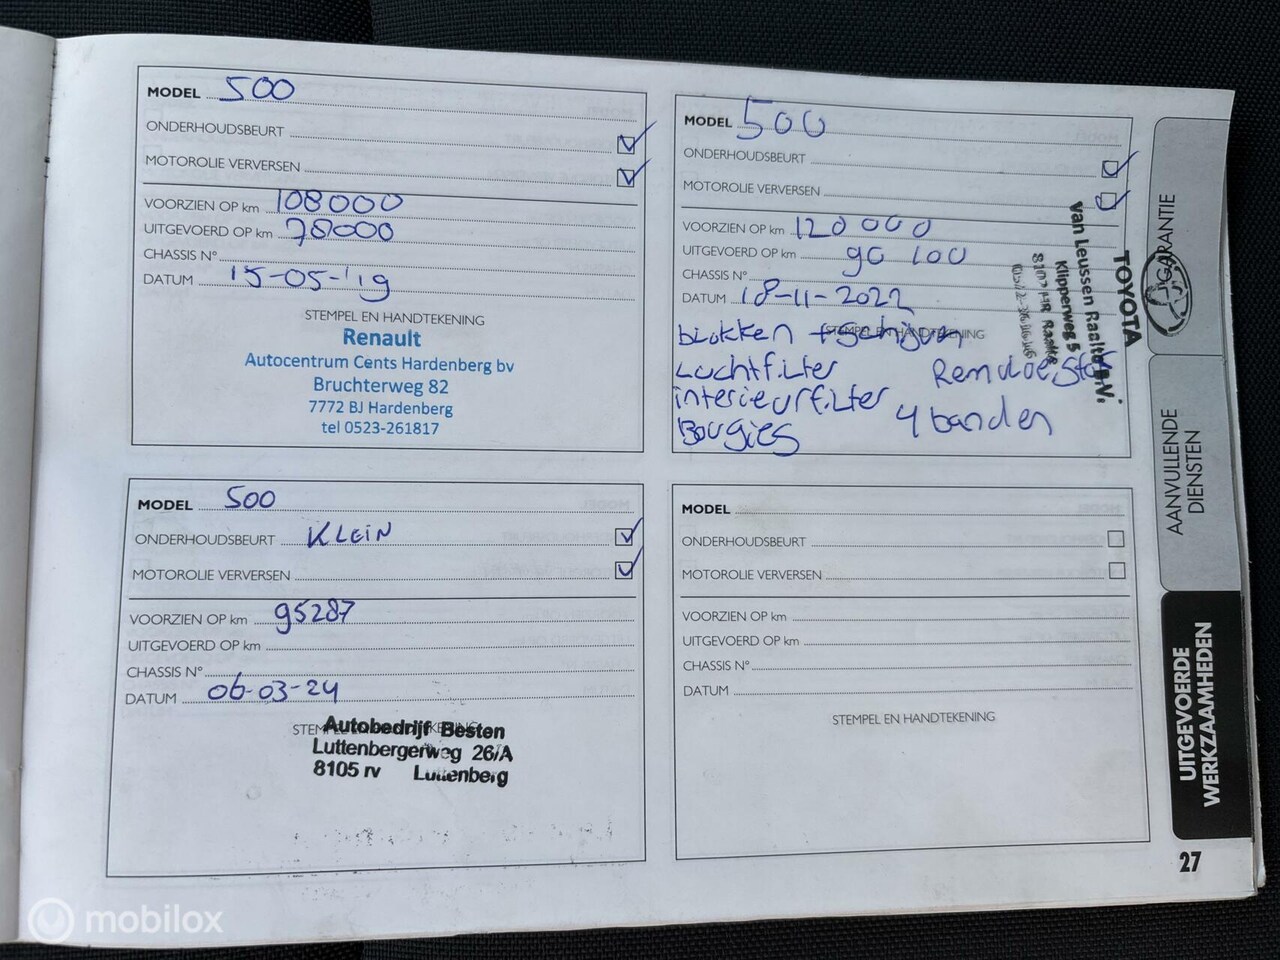 MODEL 500
ONDERHOUDSBEURT
MOTOROLIE VERVERSEN
VOORZIEN OP km 108000
UITGEVOERD OP km 78000
CHASSIS N°
DATUM 15-05-'19
STEMPEL EN HANDTEKENING
Renault
Autocentrum Cents Hardenberg bv
Bruchterweg 82
7772 BJ Hardenberg
tel 0523-261817
MODEL 500
ONDERHOUDSBEURT
MOTOROLIE VERVERSEN
VOORZIEN OP km 120000
UITGEVOERD OP km 90100
CHASSIS N°
DATUM 18-11-2022
STEMPEL EN HANDTEKENING
blokken + schijven
Luchtfilter Remvloeistof
interieurfilter
Bougies 4 banden
TOYOTA
van Leussen Raalte B.V.
Klipperweg 5
8102 HR Raalte
MODEL 500
ONDERHOUDSBEURT KLEIN
MOTOROLIE VERVERSEN
VOORZIEN OP km 95287
UITGEVOERD OP km
CHASSIS N°
DATUM 06-03-24
STEMPEL EN HANDTEKENING
Autobedrijf Besten
Luttenbergerweg 26/A
8105 rv Luttenberg
MODEL
ONDERHOUDSBEURT
MOTOROLIE VERVERSEN
VOORZIEN OP km
UITGEVOERD OP km
CHASSIS N°
DATUM
STEMPEL EN HANDTEKENING
GARANTIE
AANVULLENDE
DIENSTEN
UITGEVOERDE
WERKZAAMHEDEN
27
mobilox